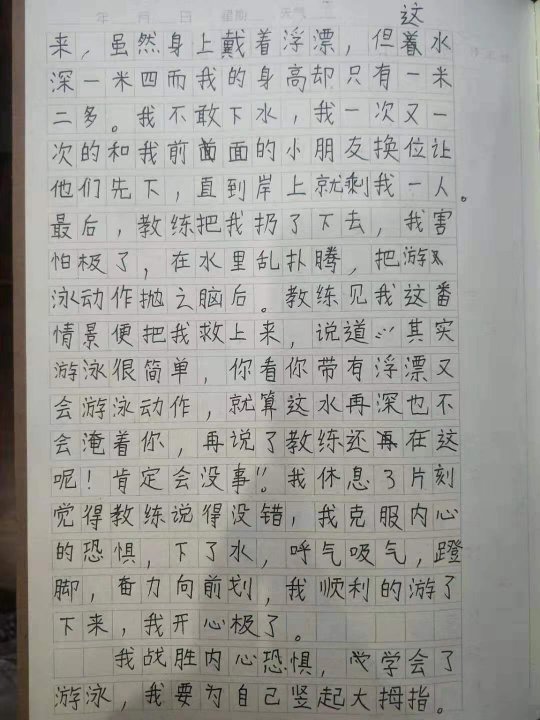 年 月 日 星期 天气
这
来，虽然身上戴着浮漂，但着水
深一米四而我的身高却只有一米
二多。我不敢下水，我一次又一
次的和我前面的小朋友换位让
他们先下，直到岸上就剩我一人。
最后，教练把我扔了下去，我害
怕极了，在水里乱扑腾，把游
泳动作抛之脑后。教练见我这番
情景便把我救上来，说道：“其实
游泳很简单，你看你带有浮漂又
会游泳动作，就算这水再深也不
会淹着你，再说了教练还在这
呢！肯定会没事！”我休息了片刻
觉得教练说得没错，我克服内心
的恐惧，下了水，呼气吸气，蹬
脚，奋力向前划，我顺利的游了
下来，我开心极了。
我战胜内心恐惧，学会了
游泳，我要为自己竖起大拇指。